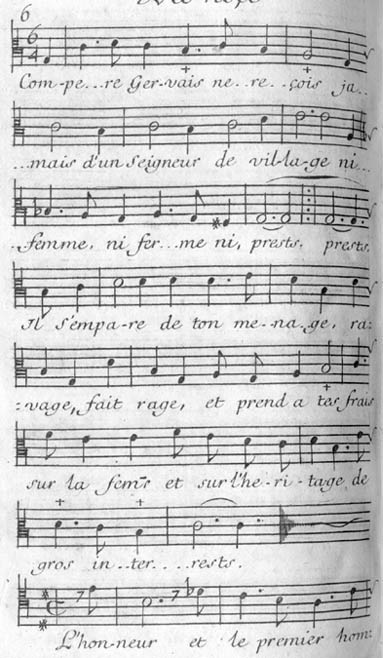 6
6
4
Com-pe..re Ger-vais ne..re..çois ja..
...mais d'un Seigneur de vil-la-ge ni...
..femme, ni fer...me ni, prests, prests,
Il s'empa-re de ton me-na-ge, ra-
-vage, fait rage, et prend a tes frais
sur la fem̃e et sur l'he-ri-tage de
gros in-ter....rests.
L'hon-neur et le premier hom-